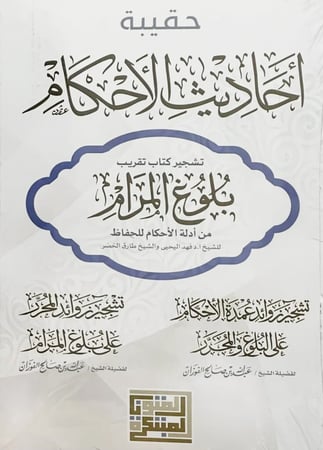 حقيبة
أحاديث الأحكام
تشجير كتاب تقريب
بلوغ المرام
من أدلة الأحكام للحفاظ
للشيخ أ.د فهد اليحيى والشيخ طارق الخضر
تشجير زوائد عمدة الأحكام
على البلوغ والمحرر
لفضيلة الشيخ / عبدالله بن صالح الفوزان
تشجير زوائد المحرر
على بلوغ المرام
لفضيلة الشيخ / عبدالله بن صالح الفوزان
المتون
المبتكرة